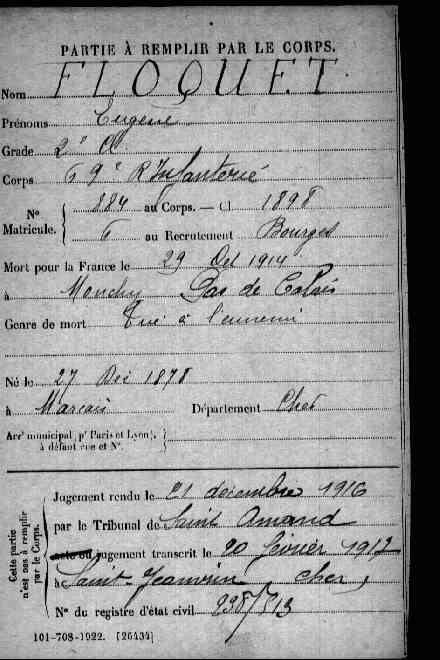 PARTIE À REMPLIR PAR LE CORPS.
Nom FLOQUET
Prénoms Eugène
Grade 2e Cl
Corps 69e R Infanterie
Nº Matricule. 884 au Corps. — Cl 1898
6 au Recrutement Bourges
Mort pour la France le 29 Oct 1914
à Monchy Pas de Calais
Genre de mort Tué à l'ennemi
Né le 27 Déc 1878
à Marçais Département Cher
Arrt municipal (pr Paris et Lyon), à défaut rue et Nº.
Cette partie n'est pas à remplir par le Corps.
Jugement rendu le 21 décembre 1916
par le Tribunal de Saint Amand
acte ou jugement transcrit le 20 février 1917
à Saint-Jeanvrin Cher
Nº du registre d'état civil
101-708-1922. [26434]